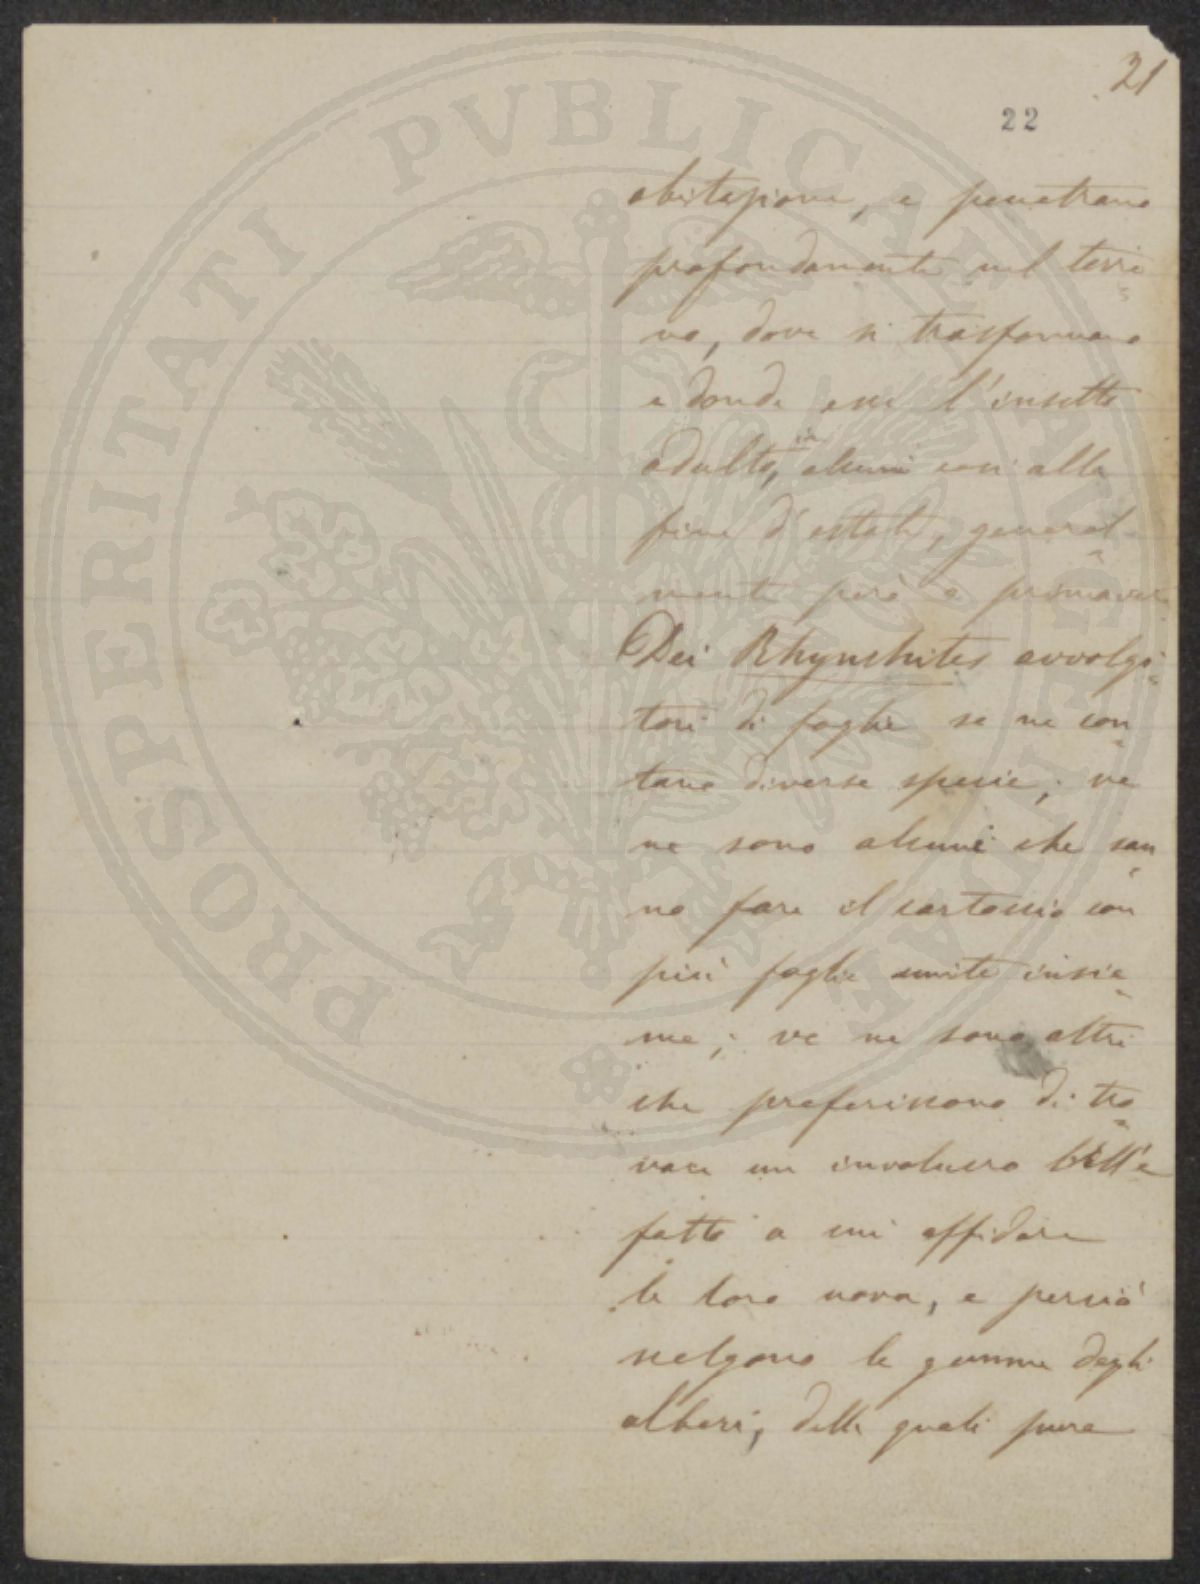 21
22
abitazione, e penetrano
profondamente nel terre
no, dove si trasformano
e donde esce l'insetto
adulto, in alcuni casi alla
fine d'estate, general
mente però a primavera
Dei Rhynchites avvolgi
tori di foglie se ne con
tano diverse specie; ve
ne sono alcuni che san
no fare il cartoccio con
più foglie unite insie
me; ve ne sono altri
che preferiscono di tro
vare un involucro bell'e
fatto a cui affidare
le loro uova, e perciò
scelgono le gemme degli
alberi, delle quali pure
PROSPERITATI PVBLICAE AVGENDAE